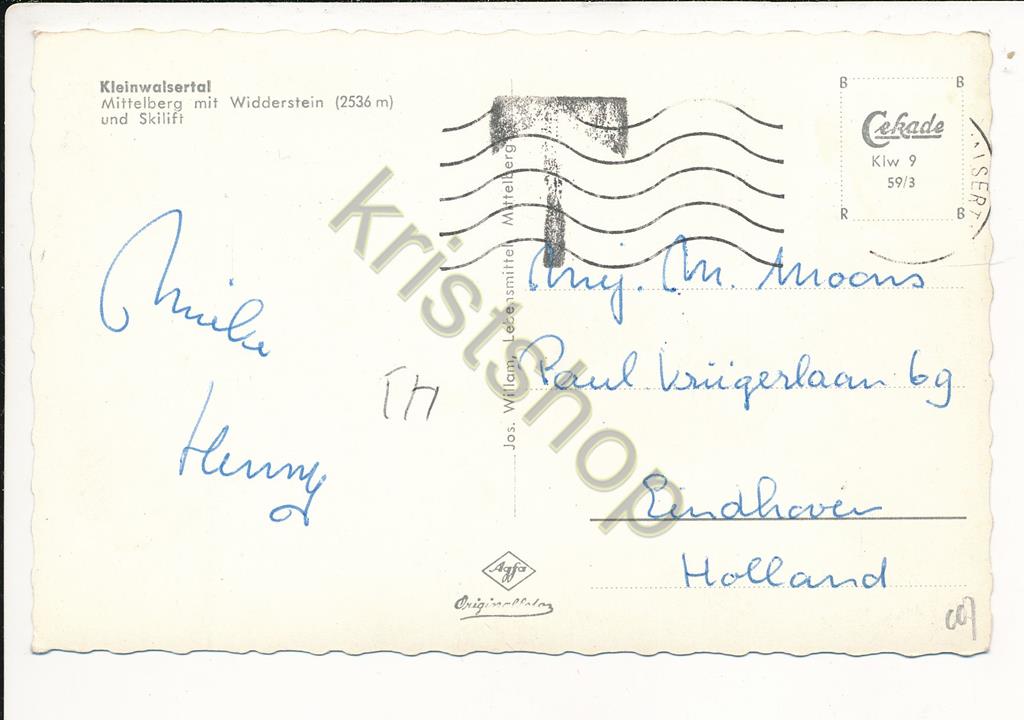 Kleinwalsertal
Mittelberg mit Widderstein (2536 m)
und Skilift
B B
Cekade
Klw 9
59/3
R B
Jos. Willam, Lebensmittel, Mittelberg
Mieke
Henny
TH
Mej. M. Moons
Paul Krügerlaan 69
Eindhoven
Holland
Agfa
Originalfoto
kristshop